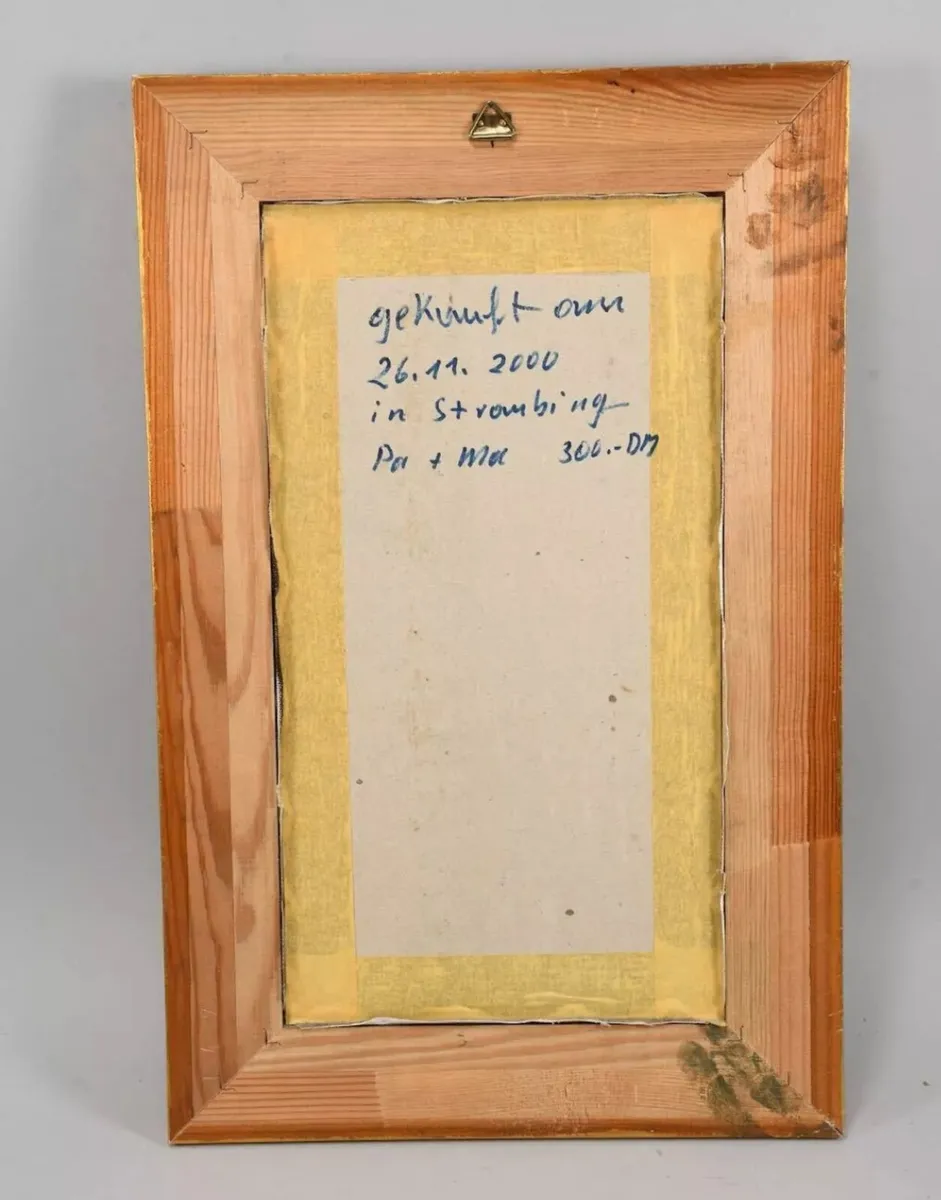 gekauft am
26.11. 2000
in Straubing
Pa + Ma 300.-DM